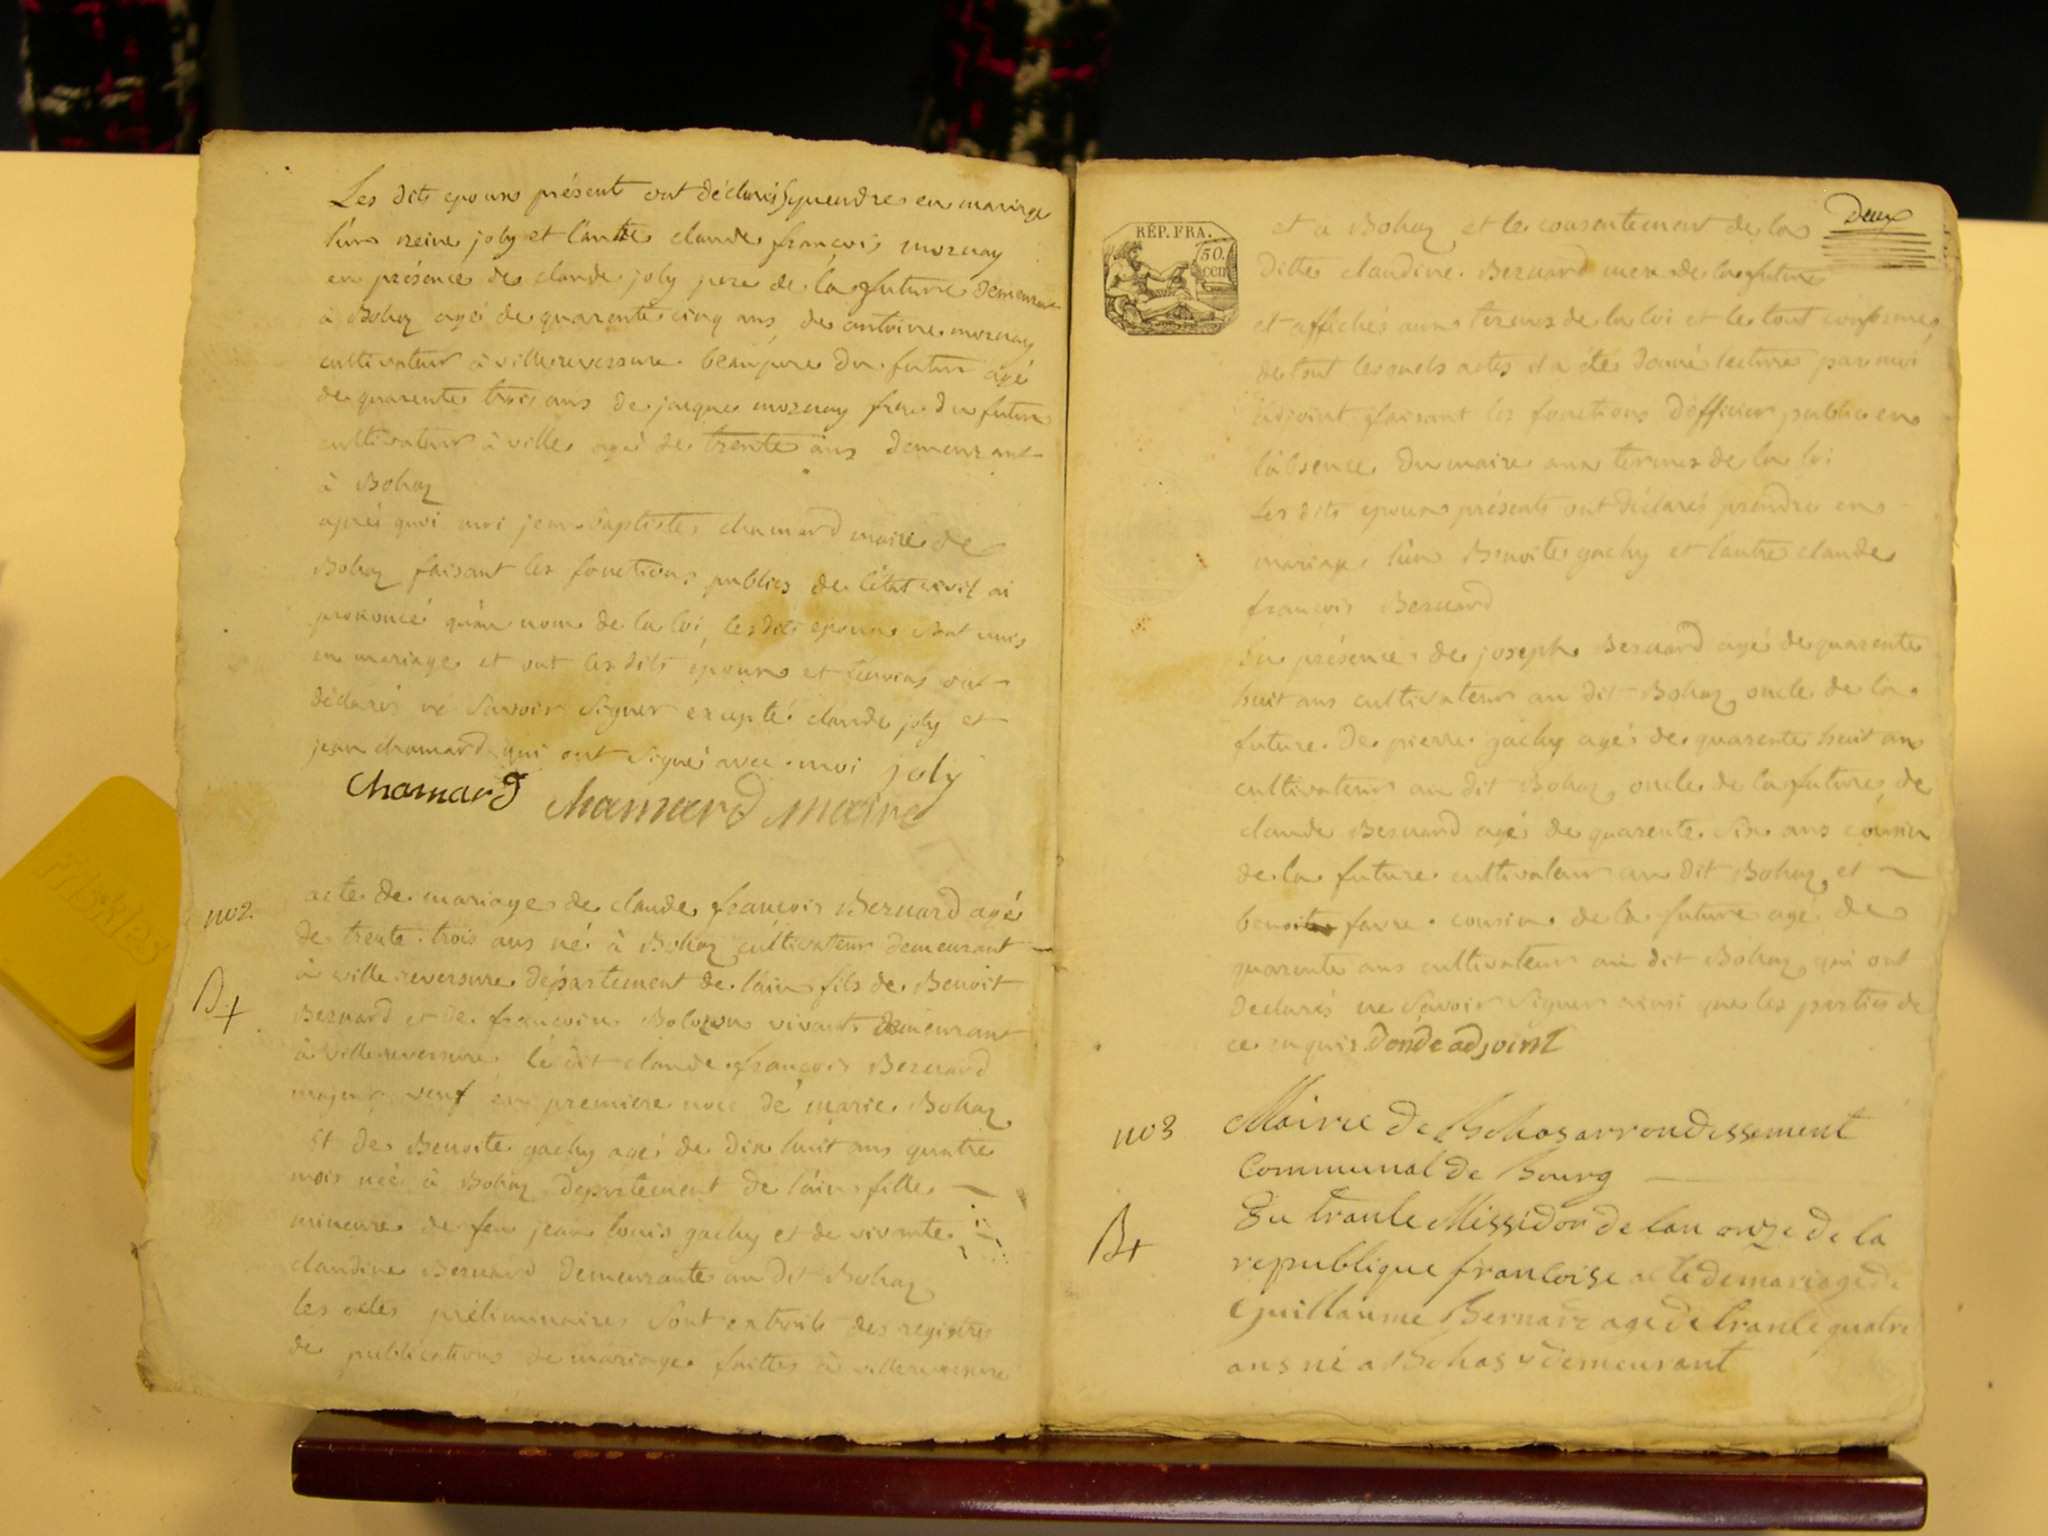 Les dits epoux présent ont déclarés prendre en mariage
l'un reine joly et l'autre claude françois mornay
en présence de claude joly pere de la future demeurant
à Bohaz agé de quarente cinq ans, de antoine mornay
cultivateur à villereversure beaupere du futur agé
de quarente trois ans de jacque mornay frere du futur
cultivateur à ville agé de trente ans demeurant
à Bohaz
après quoi moi jean baptiste chamard maire de
Bohaz faisant les fonctions publics de l'état civil ai
prononcé qu'au nom de la loi, les dits epoux sont unis
en mariage et ont les dits époux et temoins ont
déclarés ne savoir signer excepté claude joly et
jean chamard qui ont signé avec moi joly
chamard chamard maire
no 2.
acte de mariage de claude françois Bernard agé
de trente trois ans né à Bohaz cultivateur demeurant
à villereversure département de l'ain fils de Benoit
Bernard et de françoise Bolozon vivants demeurant
à villereversure le dit claude françois Bernard
majeur veuf en premiere noce de marie Bohaz
Et de Benoite gachy agé de dix huit ans quatre
mois née à Bohaz departement de l'ain fille
mineure de feu jean louis gachy et de vivante
claudine Bernard demeurante au dit Bohaz
les actes préliminaires sont extraits des registres
de publications de mariage faittes à villereversure
Deux
RÉP. FRA.
50.
cen
et a Bohaz et le consentement de la
ditte claudine Bernard mere de la future
et affichés aux termes de la loi et le tout conforme,
de tout lesquels actes il a été donné lecture par moi
adjoint faisant les fonctions d'officier public en
l'absence du maire aux termes de la loi
Les dits epoux présents ont déclarés prendre en
mariage l'un Benoite gachy et l'autre claude
françois Bernard
En présence de joseph Bernard agé de quarente
huit ans cultivateur au dit Bohaz oncle de la
future de pierre gachy agé de quarente huit ans
cultivateur au dit Bohaz oncle de la future, de
claude Bernard agé de quarente six ans cousin
de la future cultivateur au dit Bohaz et
benoit favre cousin de la future agé de
quarente ans cultivateur au dit Bohaz qui ont
declarés ne savoir signer ainsi que les parties de
ce enquis Donde adjoint
no 3
Mairie de Bohas arrondissement
Communal de Bourg
Du trante Missidor de lan onze de la
republique francoise acte de mariage de
Guillaume Bernard age de trante quatre
ans né a Bohas y demeurant